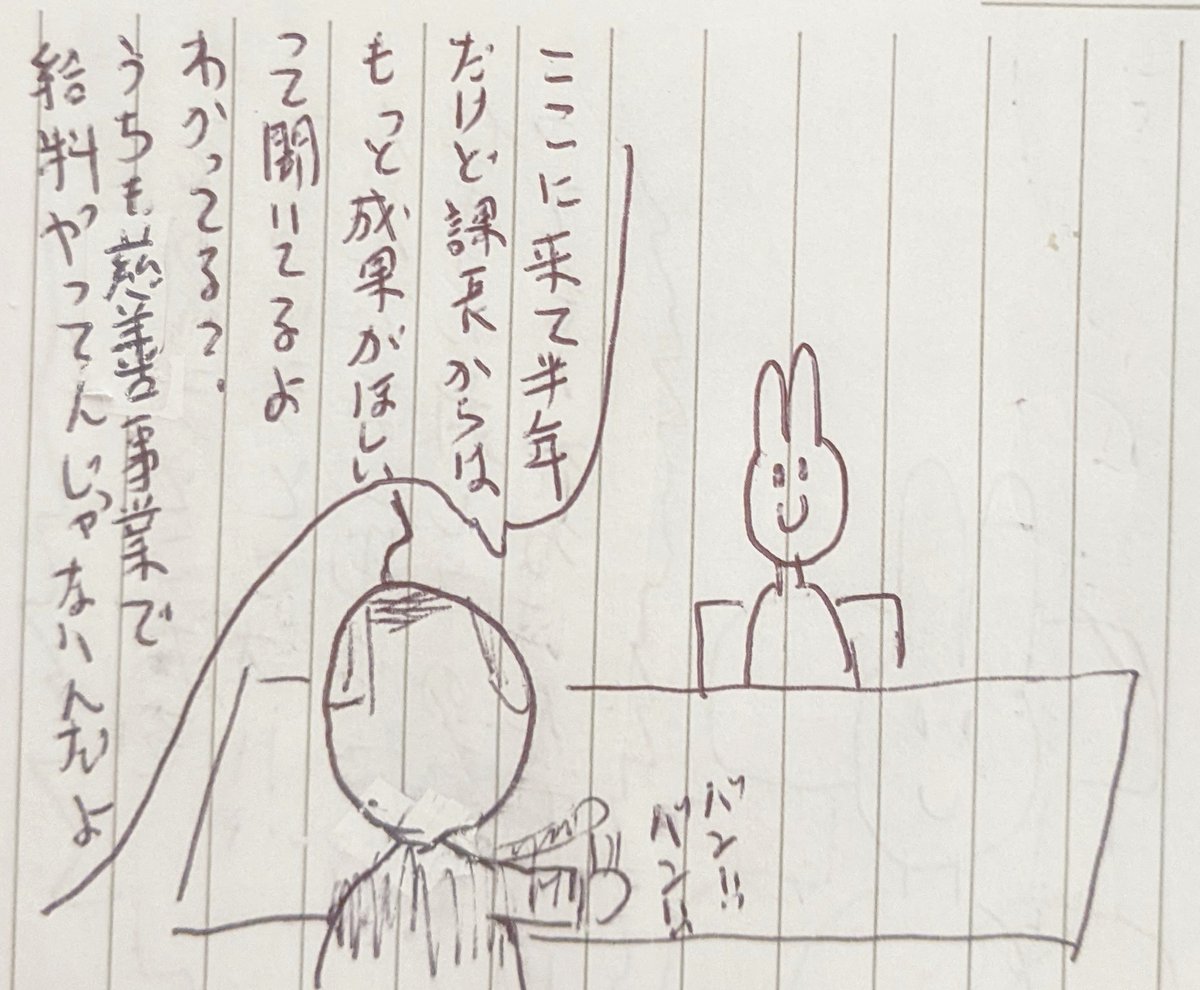 ここに来て半年
だけど課長からは
もっと成果がほしい
って聞いてるよ
わかってる?
うちも慈善事業で
給料やってんじゃないんだよ
バン!!
バン!!